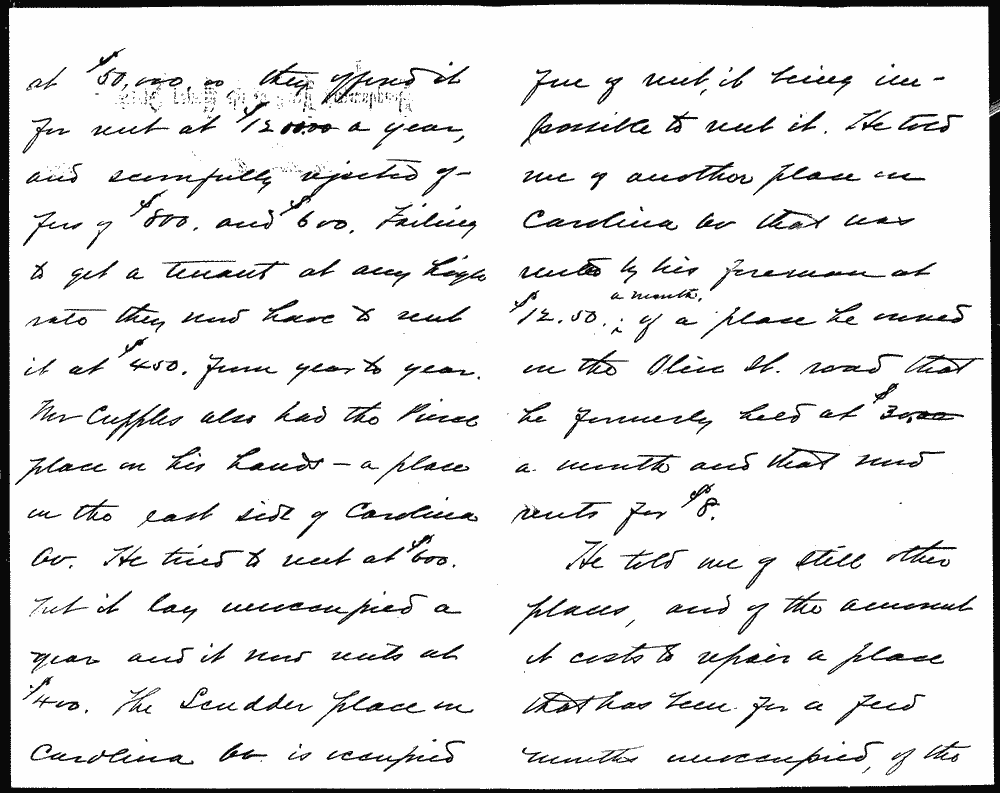 at $50,000 so they offered it
for rent at $1200.00 a year,
and scornfully rejected of-
fers of $800. and $600. Failing
to get a tenant at any high
rate they now have to rent
it at $450. from year to year.
Mr Cupples also had the Pierce
place in his hands – a place
on the east side of Carolina
Av. He tried to rent at $600.
but it lay unoccupied a
year and it now rents at
$400. The Scudder place on
Carolina Av is occupied
free of rent, it being im-
possible to rent it. He told
me of another place on
Carolina Av that was
rented by his foreman at
a month.
$12.50. ; of a place he owned
on the Olive St. road that
he formerly held at $30.00
a month and that now
rents for $8.
He told me of still other
places, and of the amount
it costs to repair a place
that has been for a few
months unoccupied, of the